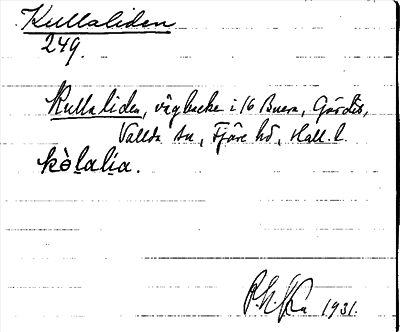 Kullaliden
249.
Kullaliden, vägbacke i 16 Buera, Gårdis,
Vallda sn, Fjäre hd, Hall. l.
kòlalia.
1931.